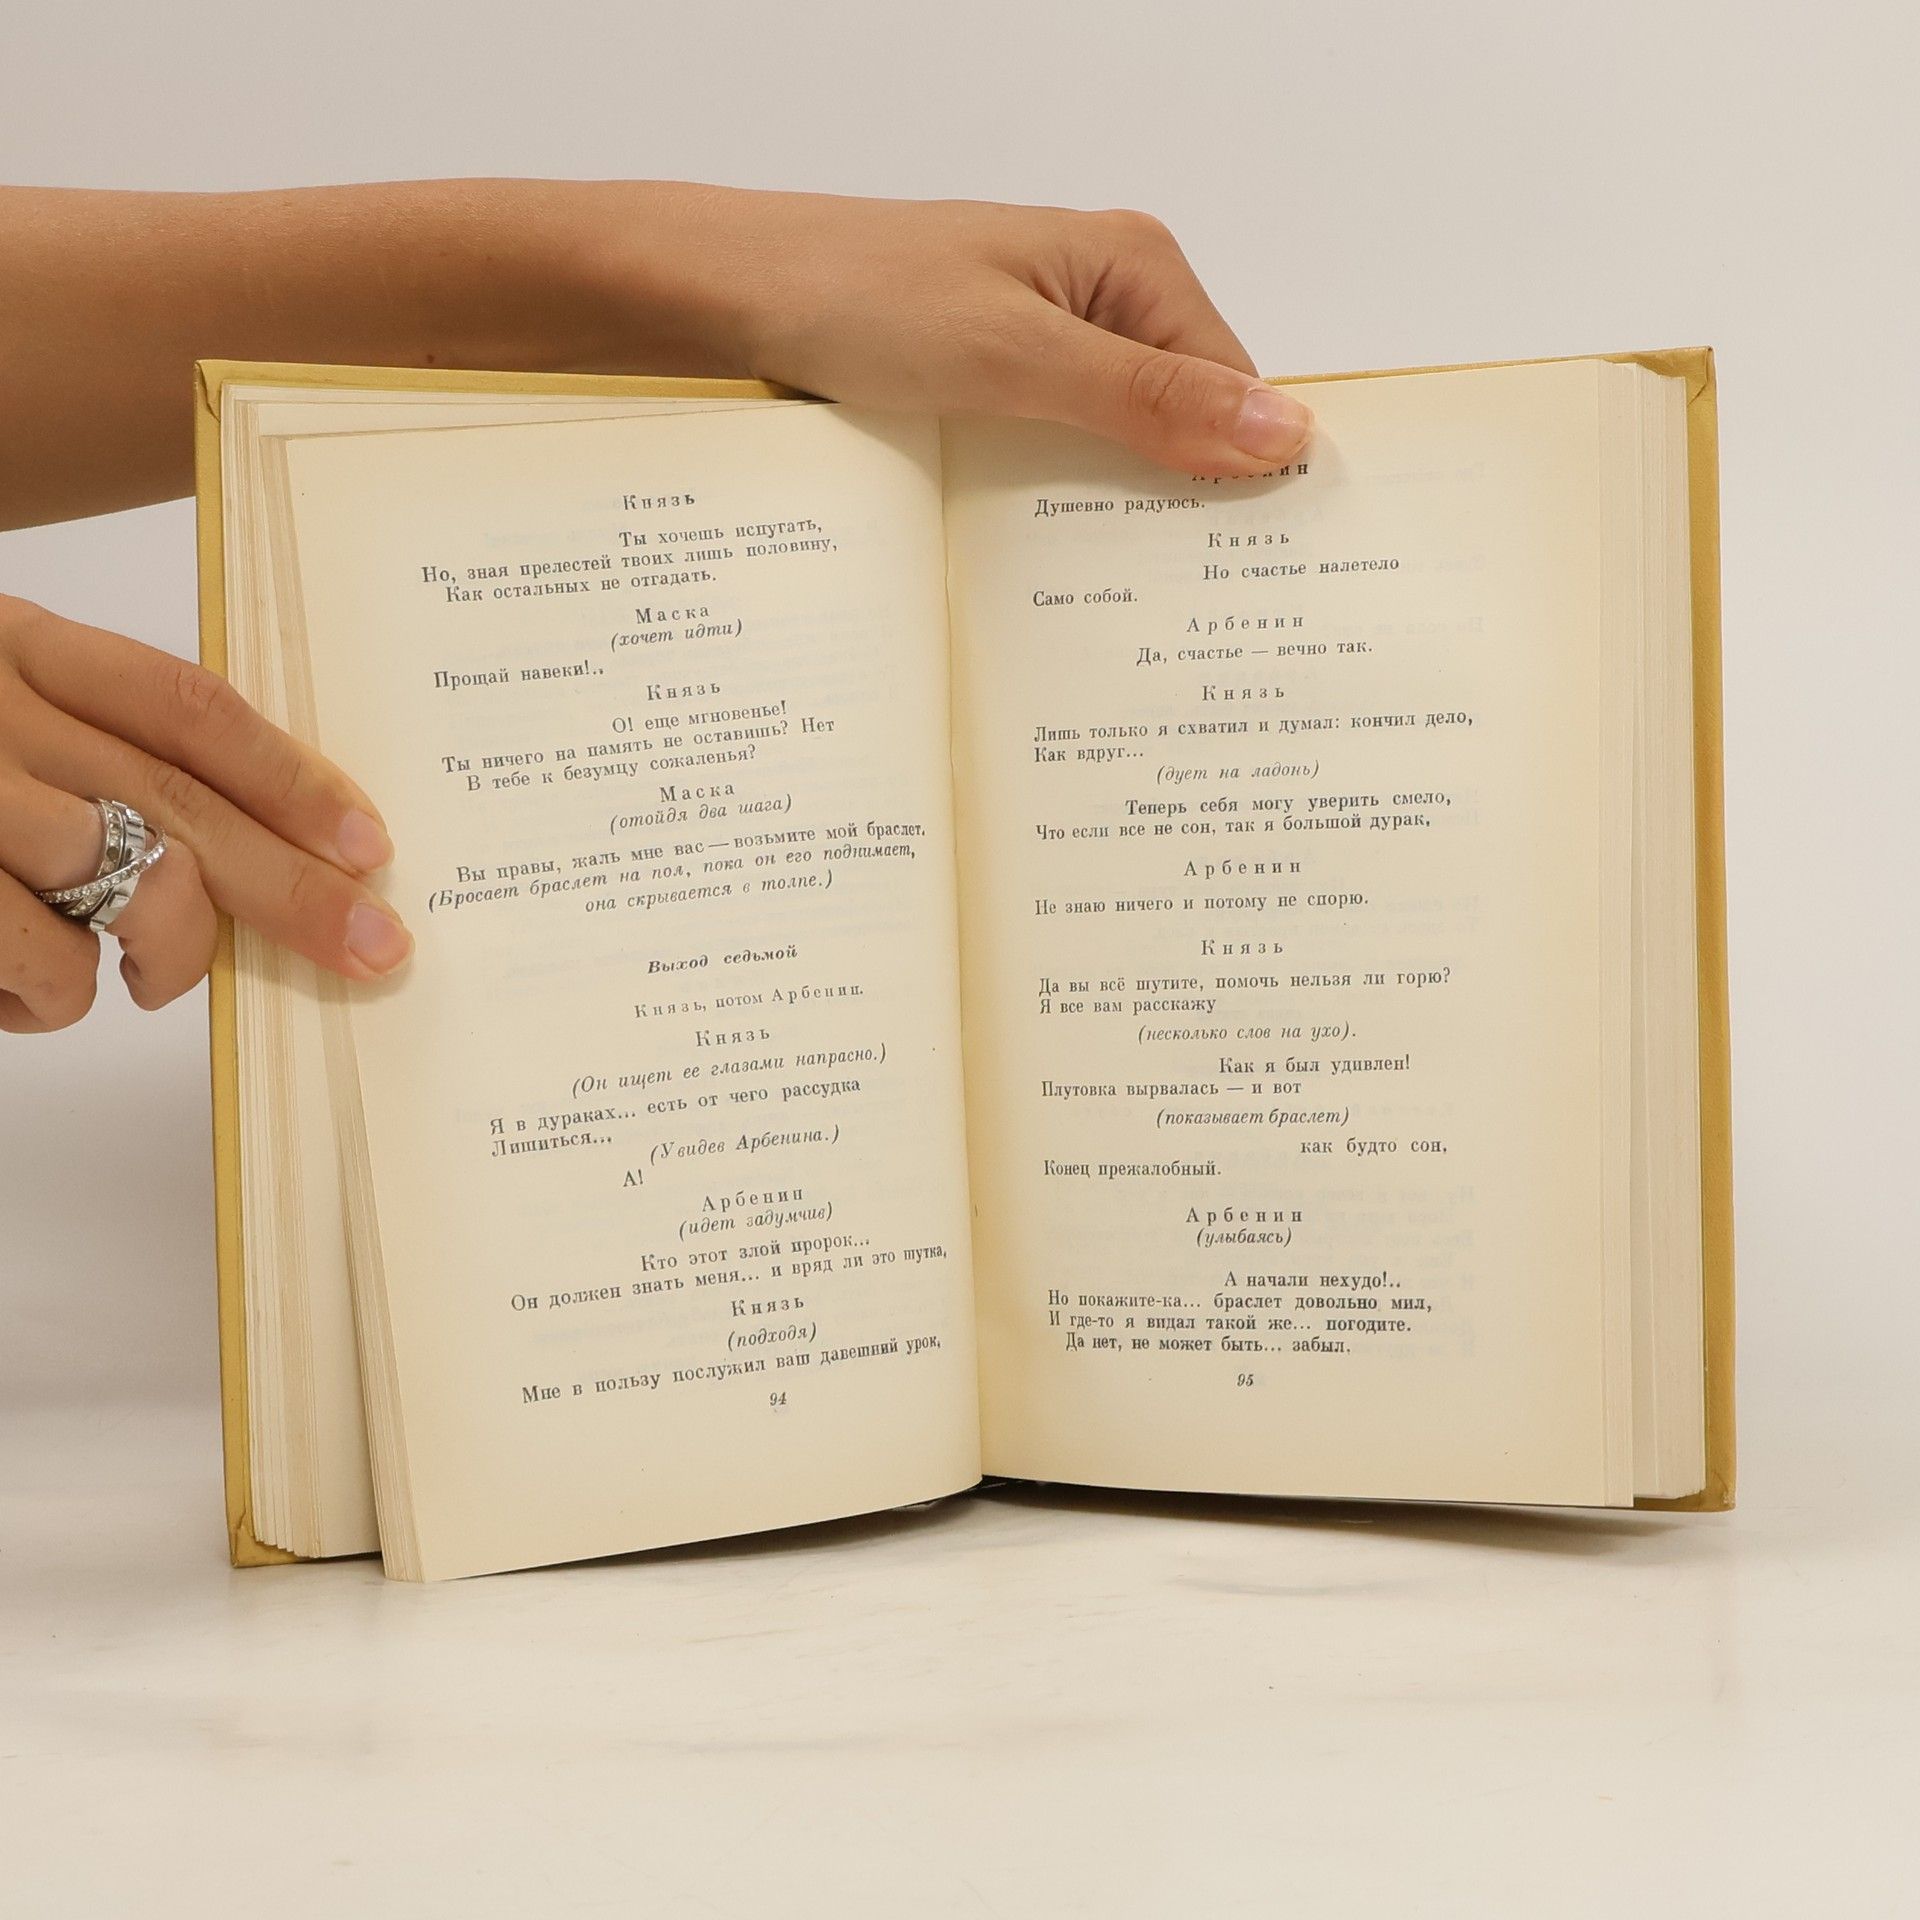 Князь
Ты хочешь испугать,
Но, зная прелестей твоих лишь половину,
Как остальных не отгадать.
Маска
(хочет идти)
Прощай навеки!..
Князь
О! еще мгновенье!
Ты ничего на память не оставишь? Нет
В тебе к безумцу сожаленья?
Маска
(отойдя два шага)
Вы правы, жаль мне вас — возьмите мой браслет.
(Бросает браслет на пол, пока он его поднимает,
она скрывается в толпе.)
Выход седьмой
Князь, потом Арбенин.
Князь
(Он ищет ее глазами напрасно.)
Я в дураках... есть от чего рассудка
Лишиться...
(Увидев Арбенина.)
А!
Арбенин
(идет задумчив)
Кто этот злой пророк...
Он должен знать меня... и вряд ли это шутка.
Князь
(подходя)
Мне в пользу послужил ваш давешний урок.
94
Арбенин
Душевно радуюсь.
Князь
Но счастье налетело
Само собой.
Арбенин
Да, счастье — вечно так.
Князь
Лишь только я схватил и думал: кончил дело,
Как вдруг...
(дует на ладонь)
Теперь себя могу уверить смело,
Что если все не сон, так я большой дурак.
Арбенин
Не знаю ничего и потому не спорю.
Князь
Да вы всё шутите, помочь нельзя ли горю?
Я все вам расскажу
(несколько слов на ухо).
Как я был удивлен!
Плутовка вырвалась — и вот
(показывает браслет)
как будто сон.
Конец прежалобный.
Арбенин
(улыбаясь)
А начали нехудо!..
Но покажите-ка... браслет довольно мил,
И где-то я видал такой же... погодите.
Да нет, не может быть... забыл.
95